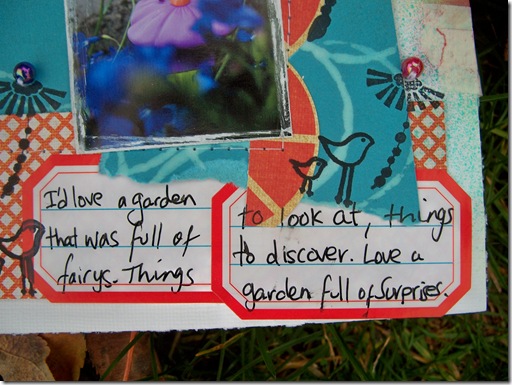 I'd love a garden
that was full of
fairys. Things
to look at, things
to discover. Love a
garden full of Surprises.